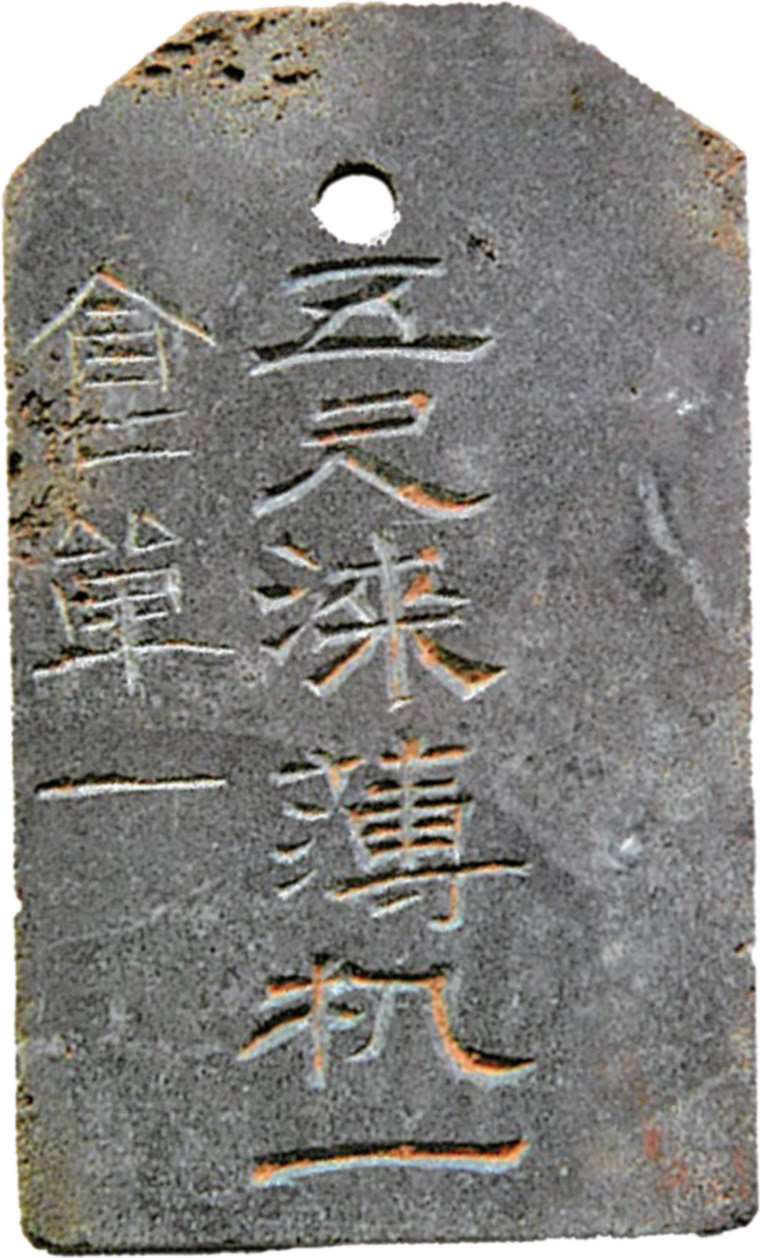 五尺漆薄机一
食單一